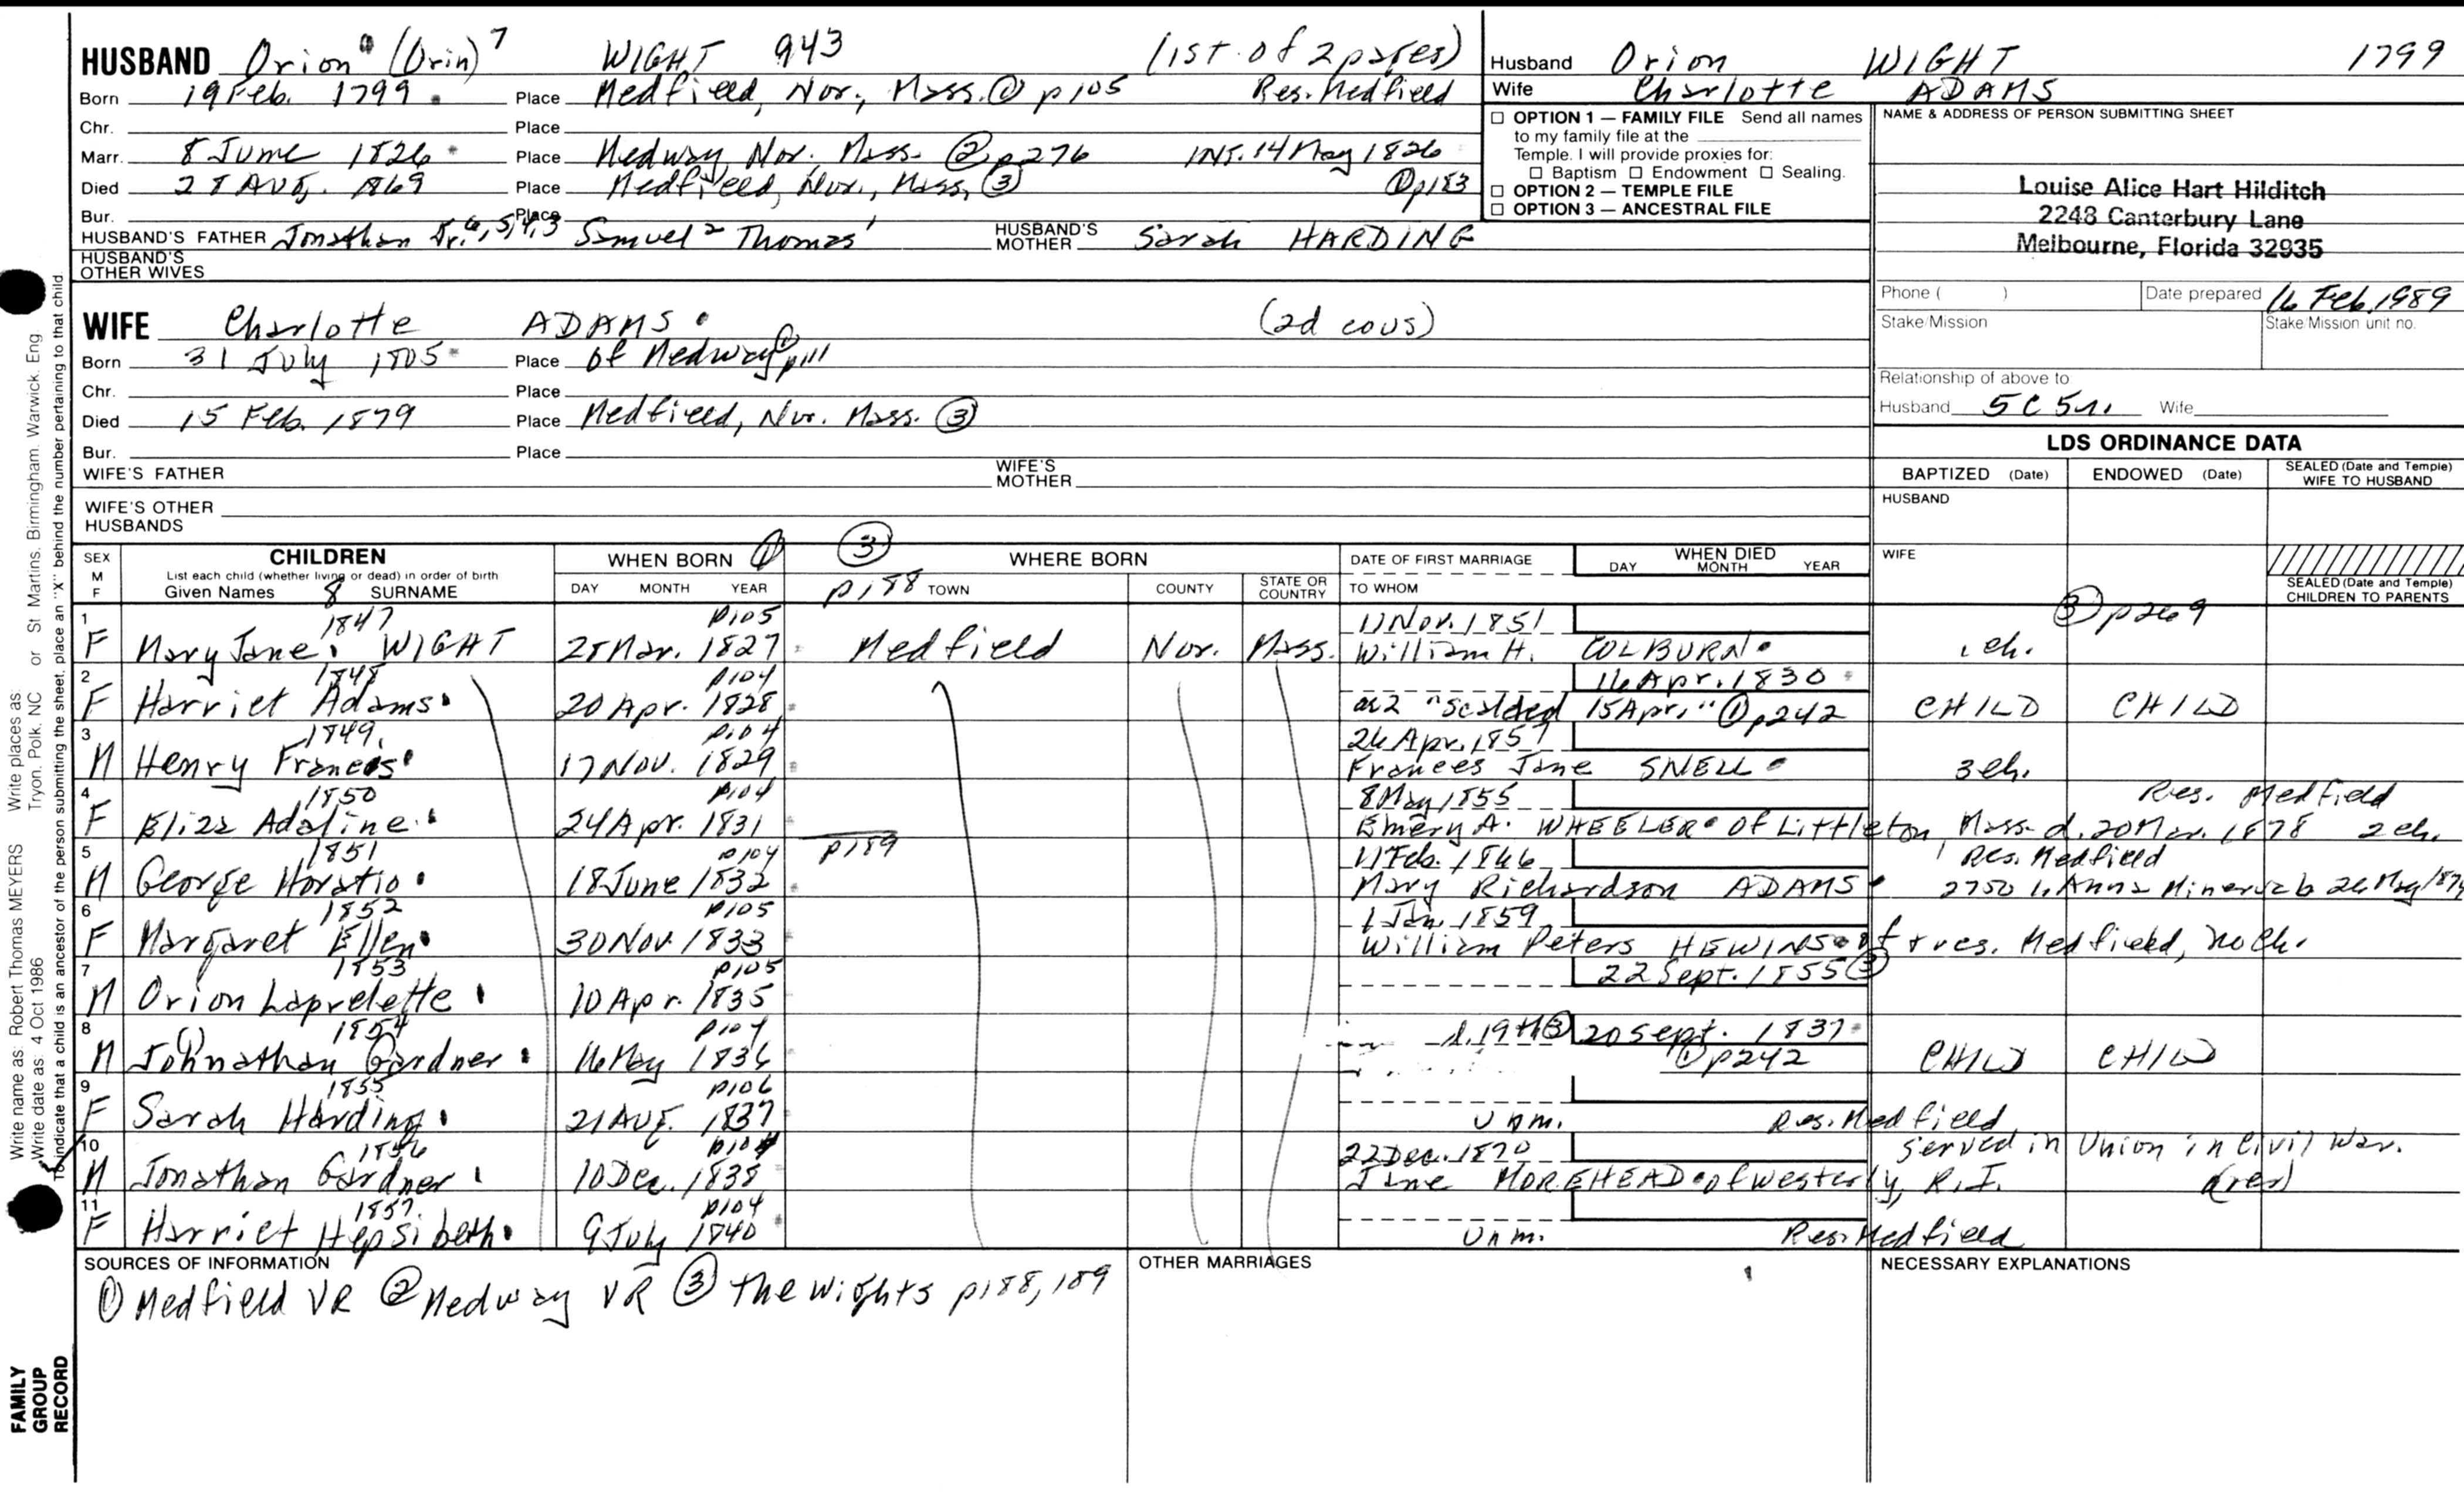 HUSBAND Orion (Orin) 7 WIGHT 943 (1st. of 2 pages)
Born 19 Feb. 1799 Place Medfield, Nor., Mass. ① p105 Res. Medfield
Chr. Place
Marr. 8 June 1826 Place Medway, Nor. Mass. ② p276 INT. 14 May 1826
Died 28 Aug. 1869 Place Medfield, Nor., Mass, ③ ① p183
Bur. Place
HUSBAND'S FATHER Jonathan Jr. 6, 5, 4, 3 Samuel 2 Thomas 1 HUSBAND'S MOTHER Sarah HARDING
HUSBAND'S OTHER WIVES
Husband Orion WIGHT 1799
Wife Charlotte ADAMS
☐ OPTION 1 — FAMILY FILE Send all names
to my family file at the
Temple. I will provide proxies for:
☐ Baptism ☐ Endowment ☐ Sealing.
☐ OPTION 2 — TEMPLE FILE
☐ OPTION 3 — ANCESTRAL FILE
NAME & ADDRESS OF PERSON SUBMITTING SHEET
Louise Alice Hart Hilditch
2248 Canterbury Lane
Melbourne, Florida 32935
Phone ( ) Date prepared 16 Feb. 1989
Stake/Mission Stake/Mission unit no.
Relationship of above to
Husband 5C5r1 Wife
WIFE Charlotte ADAMS (2d cous)
Born 31 July 1805 Place of Medway ① p111
Chr. Place
Died 15 Feb. 1879 Place Medfield, Nor. Mass. ③
Bur. Place
WIFE'S FATHER WIFE'S MOTHER
WIFE'S OTHER HUSBANDS
LDS ORDINANCE DATA
BAPTIZED (Date) ENDOWED (Date) SEALED (Date and Temple) WIFE TO HUSBAND
HUSBAND
WIFE
SEALED (Date and Temple) CHILDREN TO PARENTS
③ p269
SEX M F CHILDREN WHEN BORN ① ③ WHERE BORN DATE OF FIRST MARRIAGE WHEN DIED
List each child (whether living or dead) in order of birth
Given Names 8 SURNAME DAY MONTH YEAR p188 TOWN COUNTY STATE OR COUNTRY TO WHOM DAY MONTH YEAR
1 1847 p105 11 Nov. 1851
F Mary Jane WIGHT 28 Mar. 1827 Medfield Nor. Mass. William H. COLBURN 1 ch.
2 1848 p104 16 Apr. 1830
F Harriet Adams 20 Apr. 1828 ae 2 "scalded 15 Apr." ① p242 CHILD CHILD
3 1849 p104 26 Apr. 1857
M Henry Frances 17 Nov. 1829 Frances Jane SNELL 3 ch.
4 1850 p104 8 May 1855 Res. Medfield
F Eliza Adaline 24 Apr. 1831 Emery A. WHEELER of Littleton, Mass d. 20 Mar. 1878 2 ch.
5 1851 p104 p189 11 Feb. 1866 Res. Medfield
M George Horatio 18 June 1832 Mary Richardson ADAMS 2750 i. Anna Minerva b 26 May 187
6 1852 p105 1 Jan. 1859
F Margaret Ellen 30 Nov. 1833 William Peters HEWINS of & res. Medfield, no ch.
7 1853 p105 22 Sept. 1855 ③
M Orion Laprelette 10 Apr. 1835
8 1854 p104 d. 19th ③ 20 Sept. 1837
M Johnathan Gardner 16 May 1836 ① p242 CHILD CHILD
9 1855 p106
F Sarah Harding 21 Aug. 1837 Unm. Res. Medfield
10 1856 p104 22 Dec. 1870 served in Union in Civil War.
M Jonathan Gardner 10 Dec. 1838 Jane MOREHEAD of Westerly, R.I. (res)
11 1857 p104
F Harriet Hepsibeth 9 July 1840 Unm. Res. Medfield
SOURCES OF INFORMATION OTHER MARRIAGES NECESSARY EXPLANATIONS
① Medfield VR ② Medway VR ③ The Wights p188, 189
Write name as: Robert Thomas MEYERS Write places as: Tryon, Polk, NC or St Martins, Birmingham, Warwick, Eng
Write date as: 4 Oct 1986
To indicate that a child is an ancestor of the person submitting the sheet, place an "X" behind the number pertaining to that child.
FAMILY
GROUP
RECORD